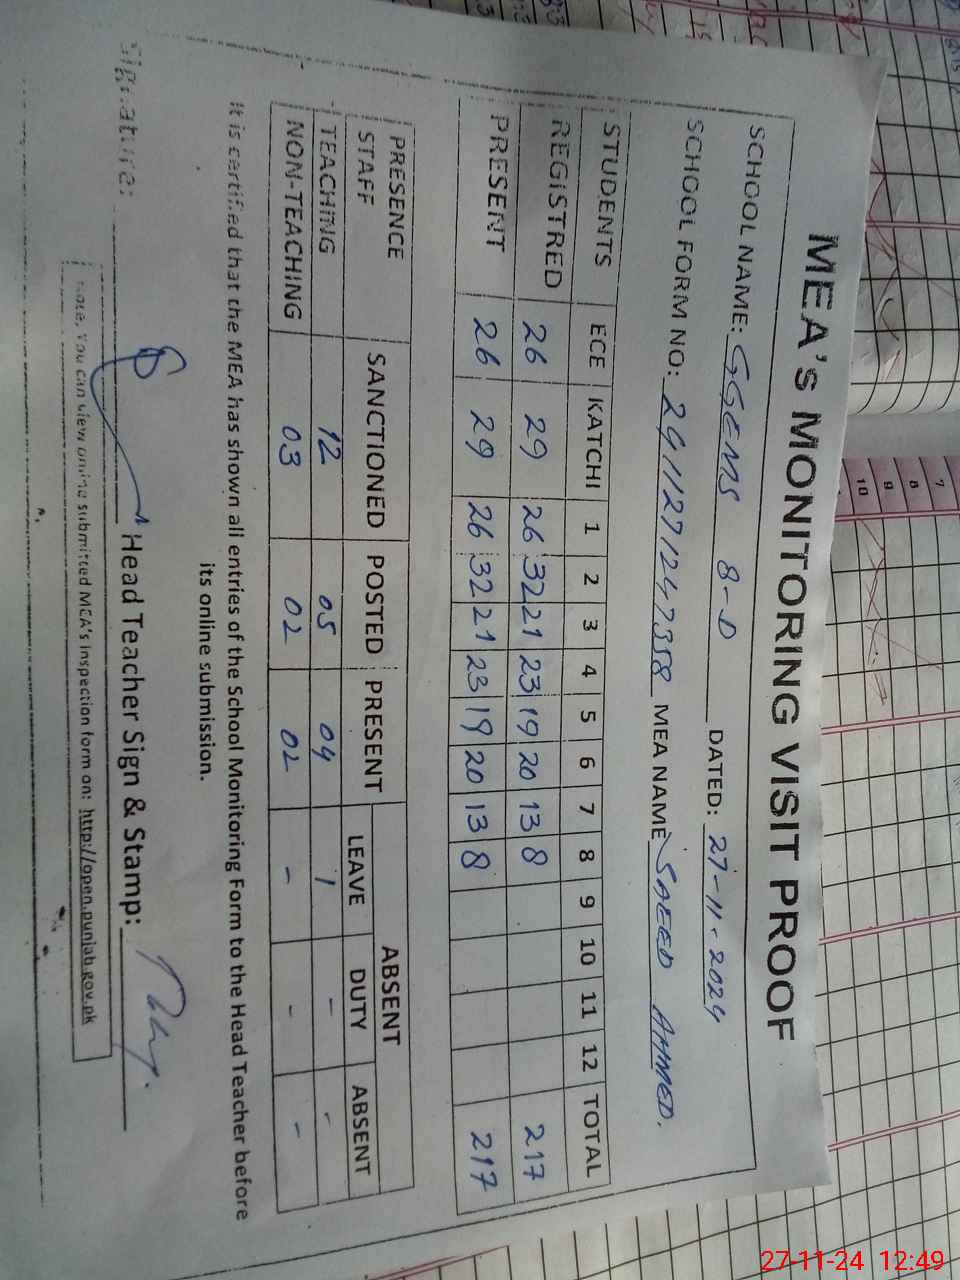 MEA's MONITORING VISIT PROOF
SCHOOL NAME: GGEMS 8-D DATED: 27-11-2024
SCHOOL FORM NO: 2911271247358 MEA NAME SAEED AHMED.
STUDENTS ECE KATCHI 1 2 3 4 5 6 7 8 9 10 11 12 TOTAL
REGISTRED 26 29 26 32 21 23 19 20 13 8 217
PRESENT 26 29 26 32 21 23 19 20 13 8 217
PRESENCE STAFF SANCTIONED POSTED PRESENT ABSENT
LEAVE DUTY ABSENT
TEACHING 12 05 04 1 - -
NON-TEACHING 03 02 02 - - -
It is certified that the MEA has shown all entries of the School Monitoring Form to the Head Teacher before
its online submission.
Signature: Head Teacher Sign & Stamp:
Note. You can view online submitted MEA's inspection form on: http://open.punjab.gov.pk
7
8
9
10
27-11-24 12:49